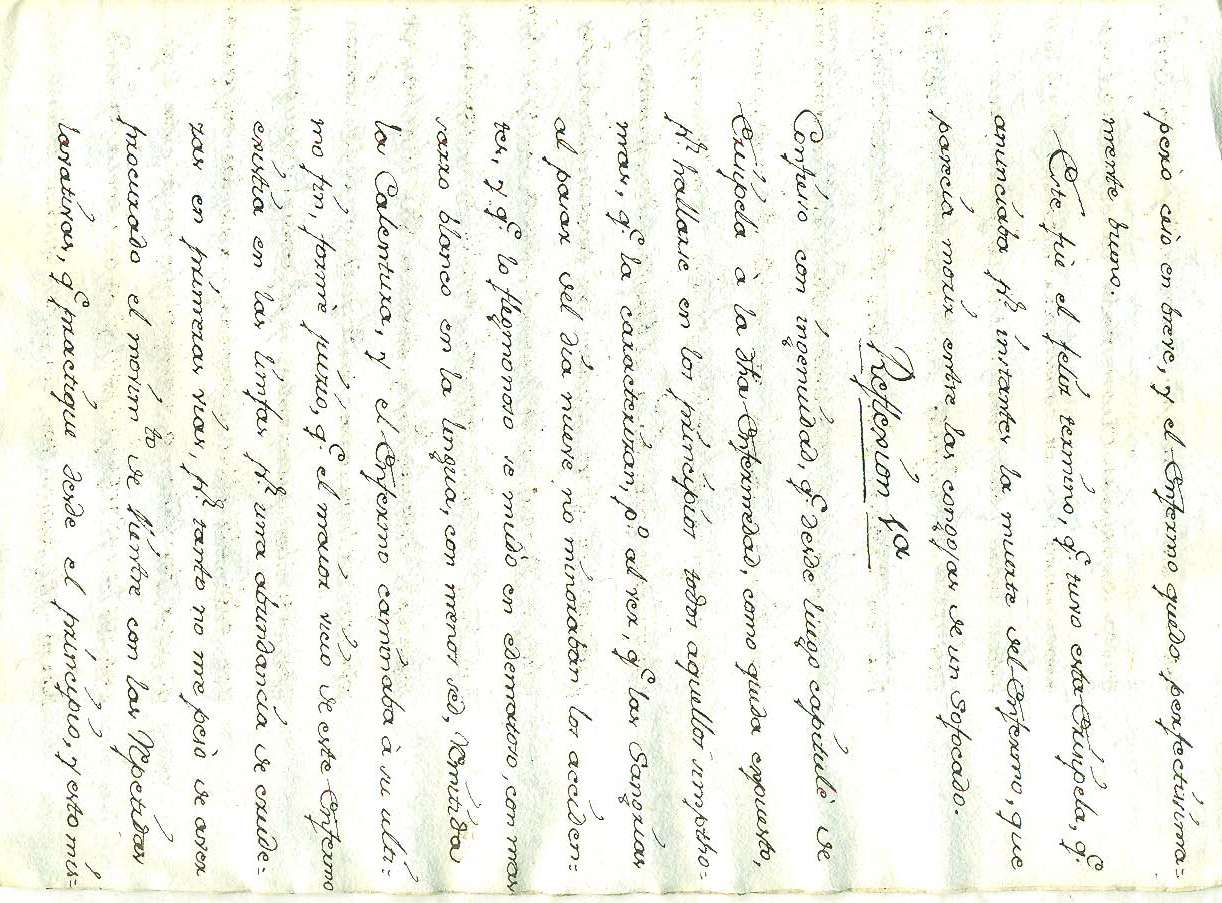 pero esto en breve, y el Enfermo quedo perfectissima=
mente bueno.
Este fuè el feliz termino, qᵉ tuvo esta Erisipela, qᵉ.
anunciaba pʳ instantes la muerte del Enfermo, que
parecia morir entre las congojas de un Sofocado.
Reflexion 1ª
Confieso con ingenuidad, qᵉ desde luego capitulè de
Erisipela à la dha Enfermedad, como queda expuesto,
pʳ hallarse en los principios todos aquellos simptho=
mas, qᵉ la caracterizan, pº al ver, qᵉ las Sangrias
al pasar del dia nueve no minoraban los acciden=
tes, y qᵉ lo flegmonoso se mudò en edematoso, con mas
sarro blanco en la lengua, con menos sed, Remitida
la Calentura, y el Enfermo caminaba à su ulti=
mo fin, formè juicio, qᵉ el maior vicio de este Enfermo
existia en las limfas pʳ una abundancia de crude=
zas en primeras vias, pʳ tanto no me pesò de aver
procurado el movimᵗᵒ de Vientre con las Repetidas
lavativas, qᵉ practiquè desde el principio, y esto mis=